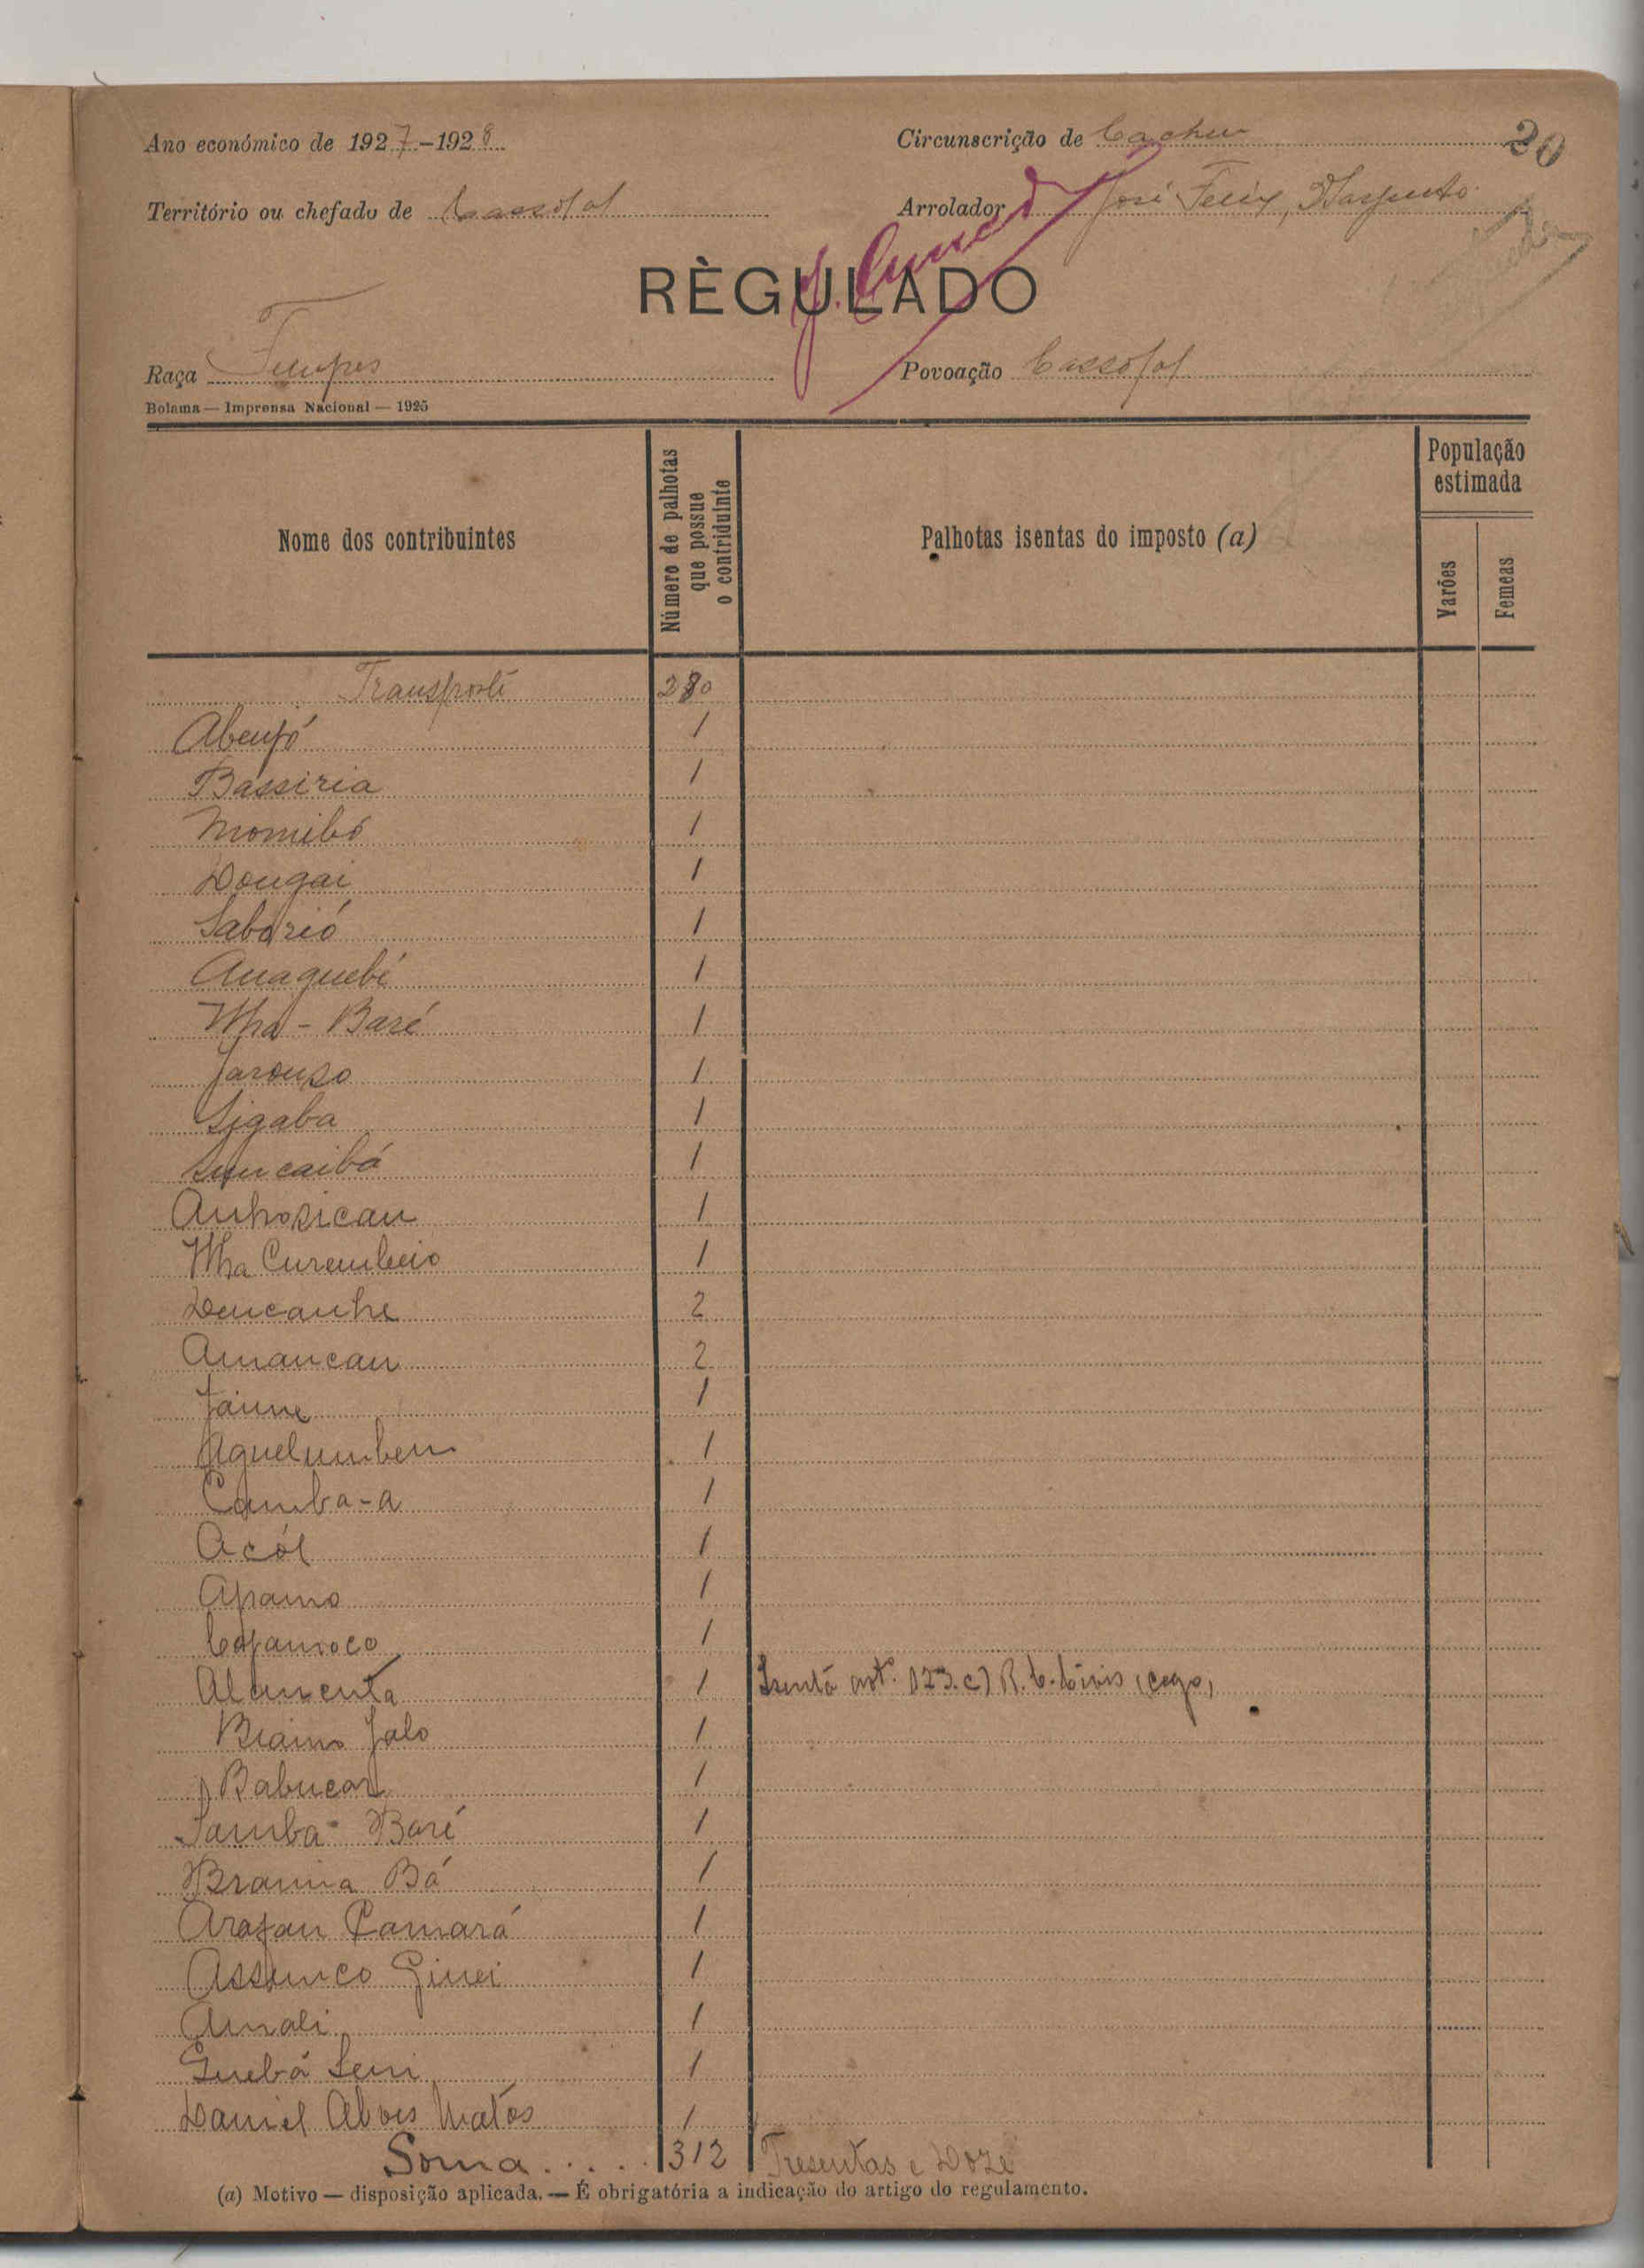 Ano económico de 1927-1928
Circunscrição de Cacheu
20
Território ou chefado de Cassolol
Arrolador José Felix,
RÈGULADO
Raça Felupes
Povoação Cassolol
Bolama — Imprensa Nacional — 1925
Nome dos contribuintes
Número de palhotas que possue o contriduinte
Palhotas isentas do imposto (a)
População estimada
Varões
Femeas
Transporte 280
1
Bassiria 1
Momibó 1
Dongai 1
Saborió 1
Anaguebé 1
Nha - Baré 1
Jarouso 1
Sigaba 1
1
Anhosican 1
Nha 1
Dencanhe 2
Amancan 2
Jaime 1
Aguelumben 1
Camba-a 1
Acól 1
Apamo 1
1
Alamenta 1 Isenta art. 123. c) R. C. Civis (cego)
Biaimo Jalo 1
Babucar 1
Samba Baré 1
Braima Bá 1
Arafan Camará 1
Assumco Ginei 1
Amali 1
Guebá Seni 1
Daniel Alves Matos 1
Soma..... 312 Tresentas e Doze
(a) Motivo — disposição aplicada. — É obrigatória a indicação do artigo do regulamento.